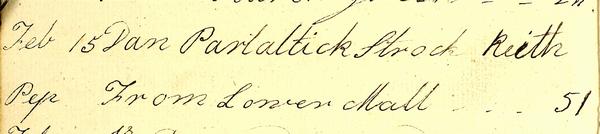 Feb 15 Dan Partaltick Strock Reith
Pep From Lower Mall - - - 51